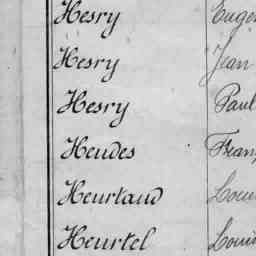 Hesry Eugen
Hesry Jean
Hesry Paul
Heudes Franç
Heurtaud Loui
Heurtel Loui